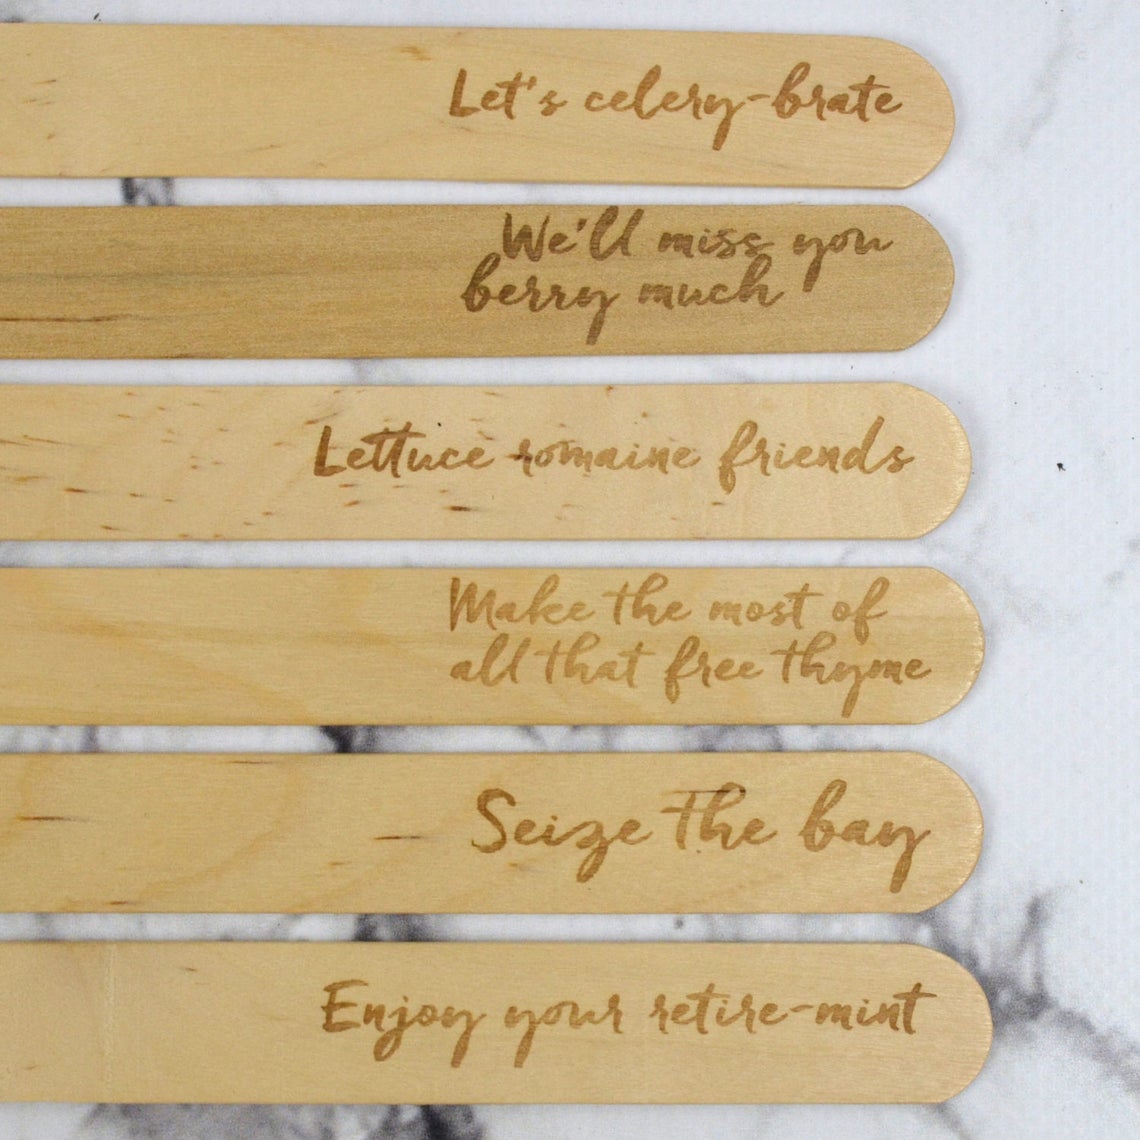 Let's celery-brate
We'll miss you
berry much
Lettuce romaine friends
Make the most of
all that free thyme
Seize the bay
Enjoy your retire-mint